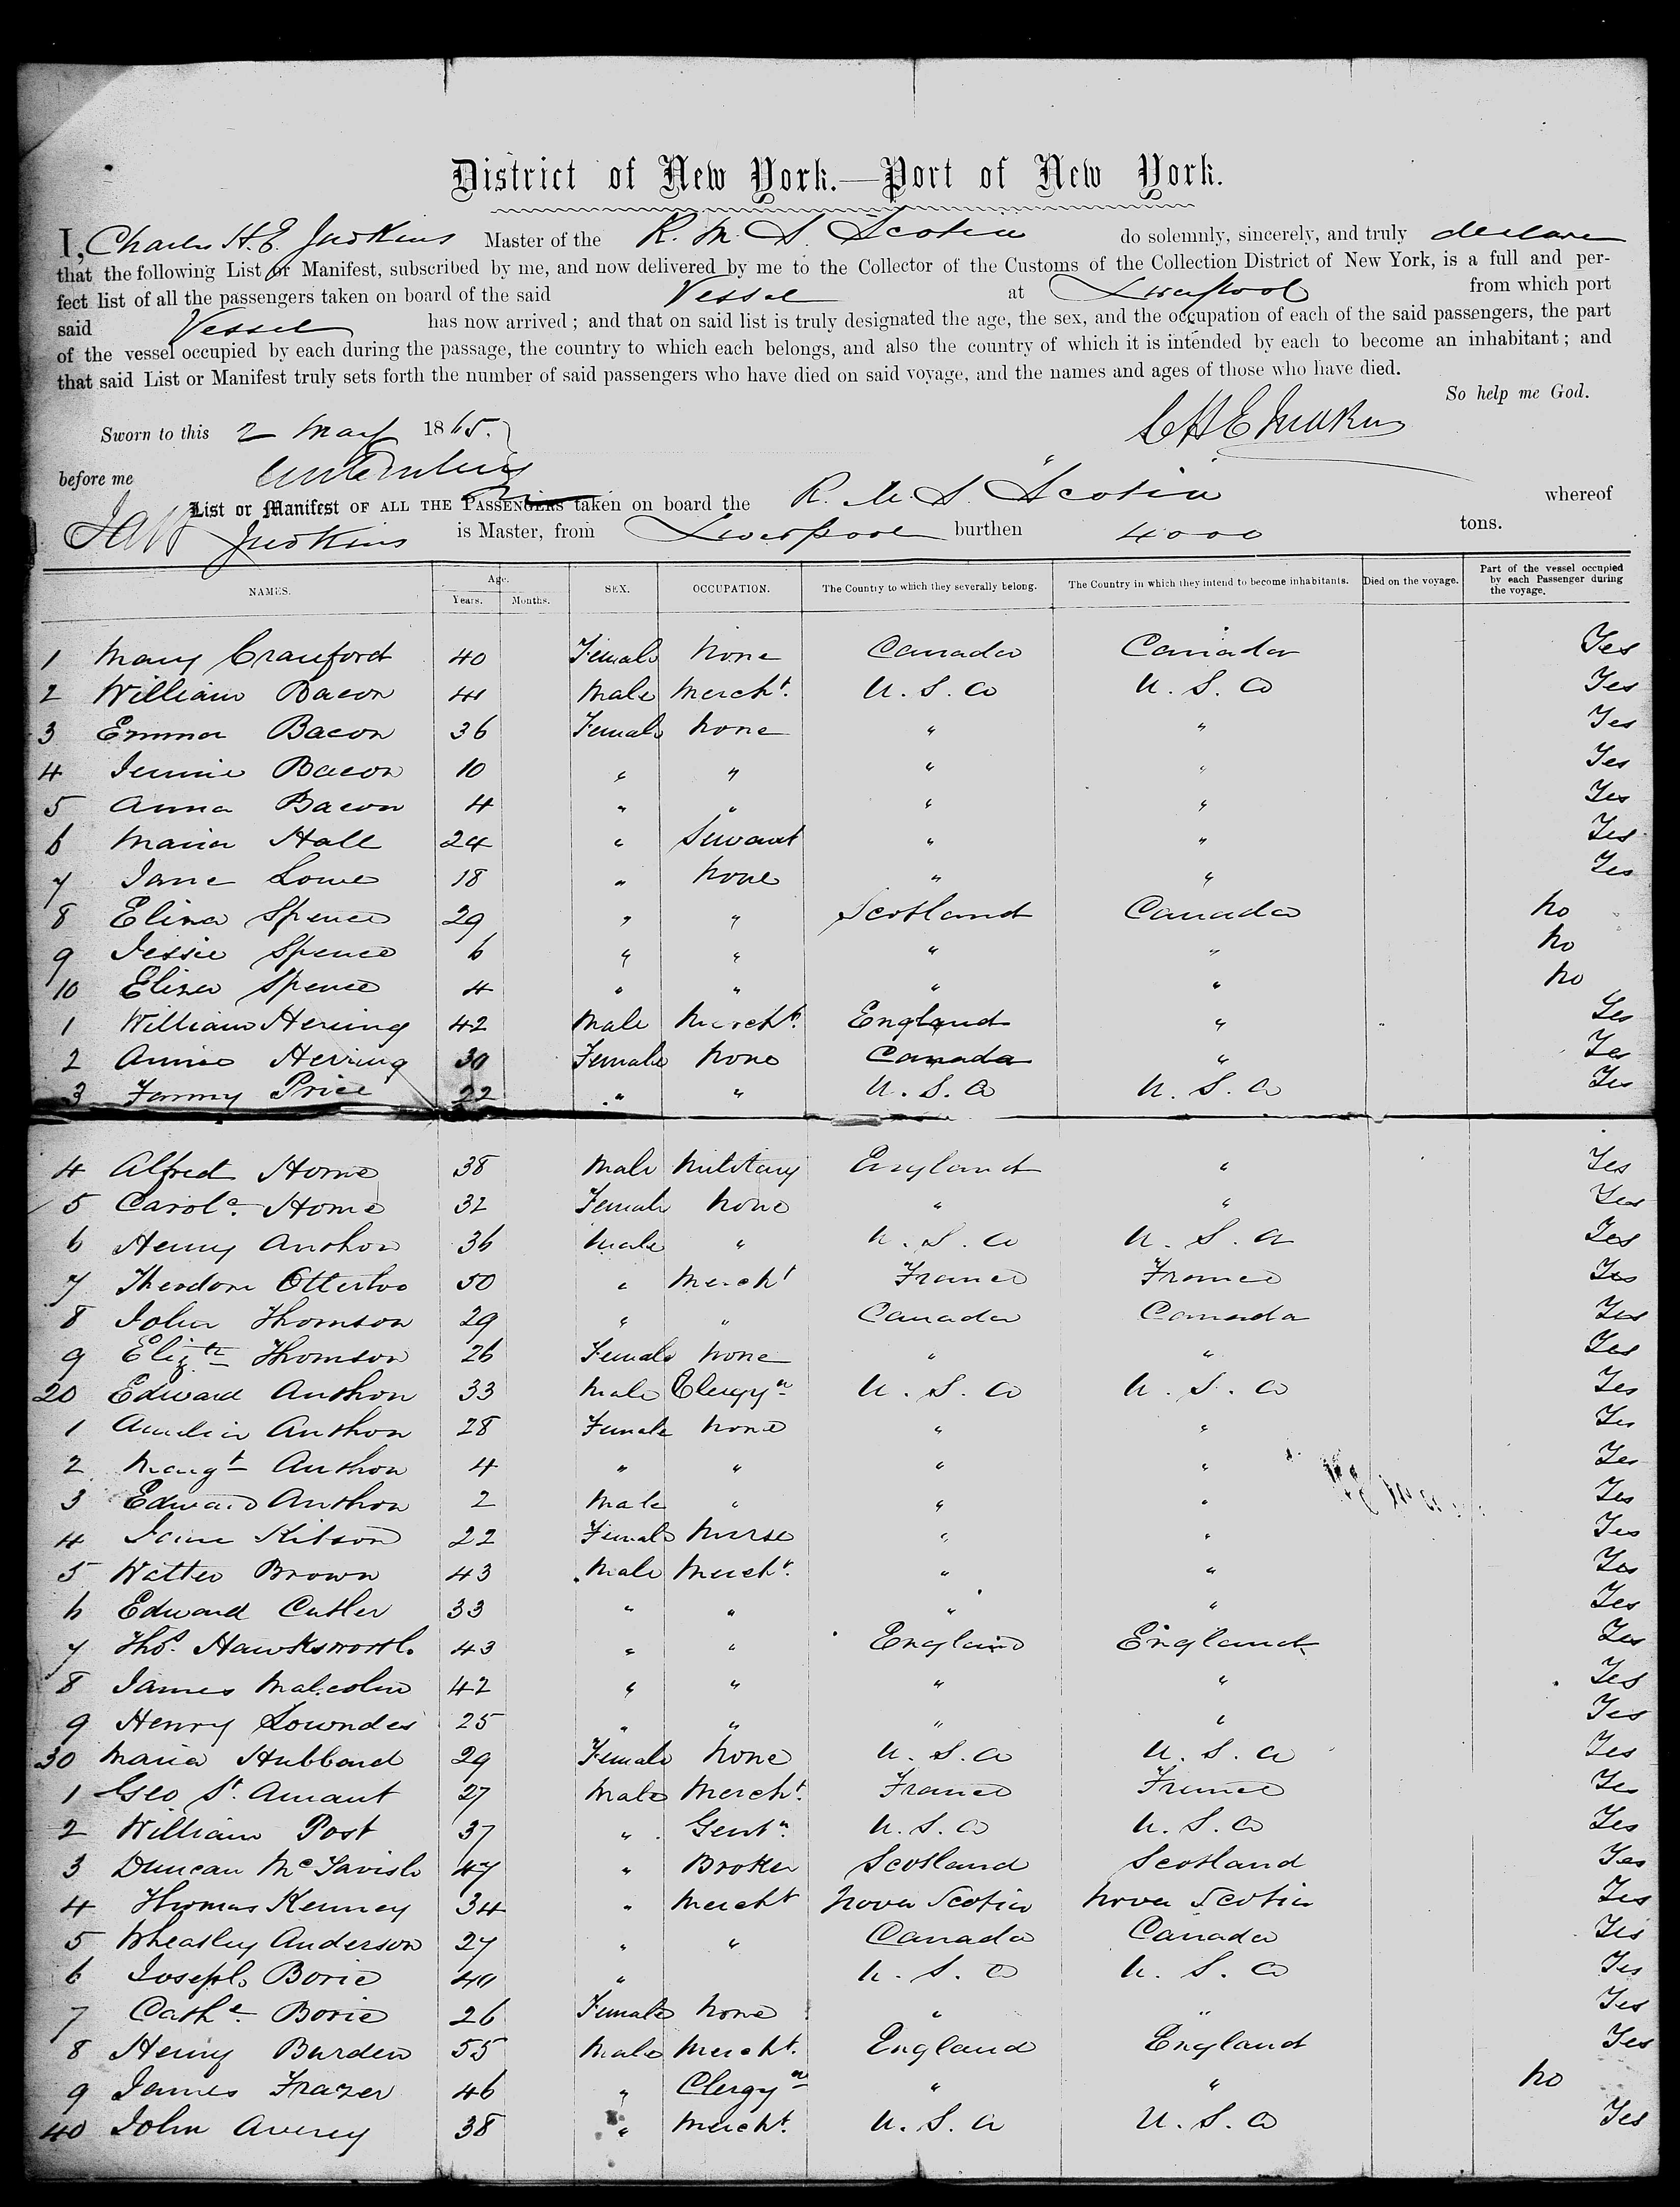 District of New York.—Port of New York.
I, Charles H. E. Judkins Master of the R. M. S. Scotia do solemnly, sincerely, and truly declare
that the following List or Manifest, subscribed by me, and now delivered by me to the Collector of the Customs of the Collection District of New York, is a full and per-
fect list of all the passengers taken on board of the said Vessel at Liverpool from which port
said Vessel has now arrived; and that on said list is truly designated the age, the sex, and the occupation of each of the said passengers, the part
of the vessel occupied by each during the passage, the country to which each belongs, and also the country of which it is intended by each to become an inhabitant; and
that said List or Manifest truly sets forth the number of said passengers who have died on said voyage, and the names and ages of those who have died.
So help me God.
Sworn to this 2 May 1865.
C H E Judkins
before me
List or Manifest OF ALL THE PASSENGERS taken on board the R. M. S. Scotia whereof
Judkins is Master, from Liverpool burthen 4000 tons.
NAMES. Age. Years. Months. SEX. OCCUPATION. The Country to which they severally belong. The Country in which they intend to become inhabitants. Died on the voyage. Part of the vessel occupied by each Passenger during the voyage.
1 Mary Crauford 40 Female None Canada Canada Yes
2 William Bacon 41 Male Mercht. U. S. A U. S. A Yes
3 Emma Bacon 36 Female None " " Yes
4 Jennie Bacon 10 " " " " Yes
5 Anna Bacon 4 " " " " Yes
6 Maria Hall 24 " Servant " " Yes
7 Jane Lowe 18 " None " " Yes
8 Eliza Spence 29 " " Scotland Canada No
9 Jessie Spence 6 " " " " No
10 Eliza Spence 4 " " " " No
1 William Herring 42 Male Mercht. England " Yes
2 Annie Herring 30 Female None Canada " Yes
3 Fanny Price 22 " " U. S. A U. S. A Yes
4 Alfred Horne 38 Male Military England " Yes
5 Carole. Horne 32 Female None " " Yes
6 Henry Anthon 36 Male " U. S. A U. S. A Yes
7 Theodore 50 " Mercht France France Yes
8 John Thomson 29 " " Canada Canada Yes
9 Elizth Thomson 26 Female None " " Yes
20 Edward Anthon 33 Male Clergyn U. S. A U. S. A Yes
1 Amelia Anthon 28 Female None " " Yes
2 Margt Anthon 4 " " " " Yes
3 Edward Anthon 2 Male " " " Yes
4 Jane Kitson 22 Female Nurse " " Yes
5 Walter Brown 43 Male Mercht. " " Yes
6 Edward Cutler 33 " " " " Yes
7 Thos. Hawksworth 43 " " England England Yes
8 James Malcolm 42 " " " " Yes
9 Henry Lowndes 25 " " " " Yes
30 Maria Hubbard 29 Female None U. S. A U. S. A Yes
1 Geo St. Amant 27 Male Mercht. France France Yes
2 William Post 37 " Gentn. U. S. A U. S. A Yes
3 Duncan McTavish 47 " Broker Scotland Scotland Yes
4 Thomas Kenney 34 " Mercht Nova Scotia Nova Scotia Yes
5 Wheatley Anderson 27 " " Canada Canada Yes
6 Joseph Borie 40 " U. S. A U. S. A Yes
7 Cathe. Borie 26 Female None " " Yes
8 Henry Burden 55 Male Mercht. England England Yes
9 James Frazer 46 " Clergyn " " No
40 John Averey 38 " Mercht. U. S. A U. S. A Yes